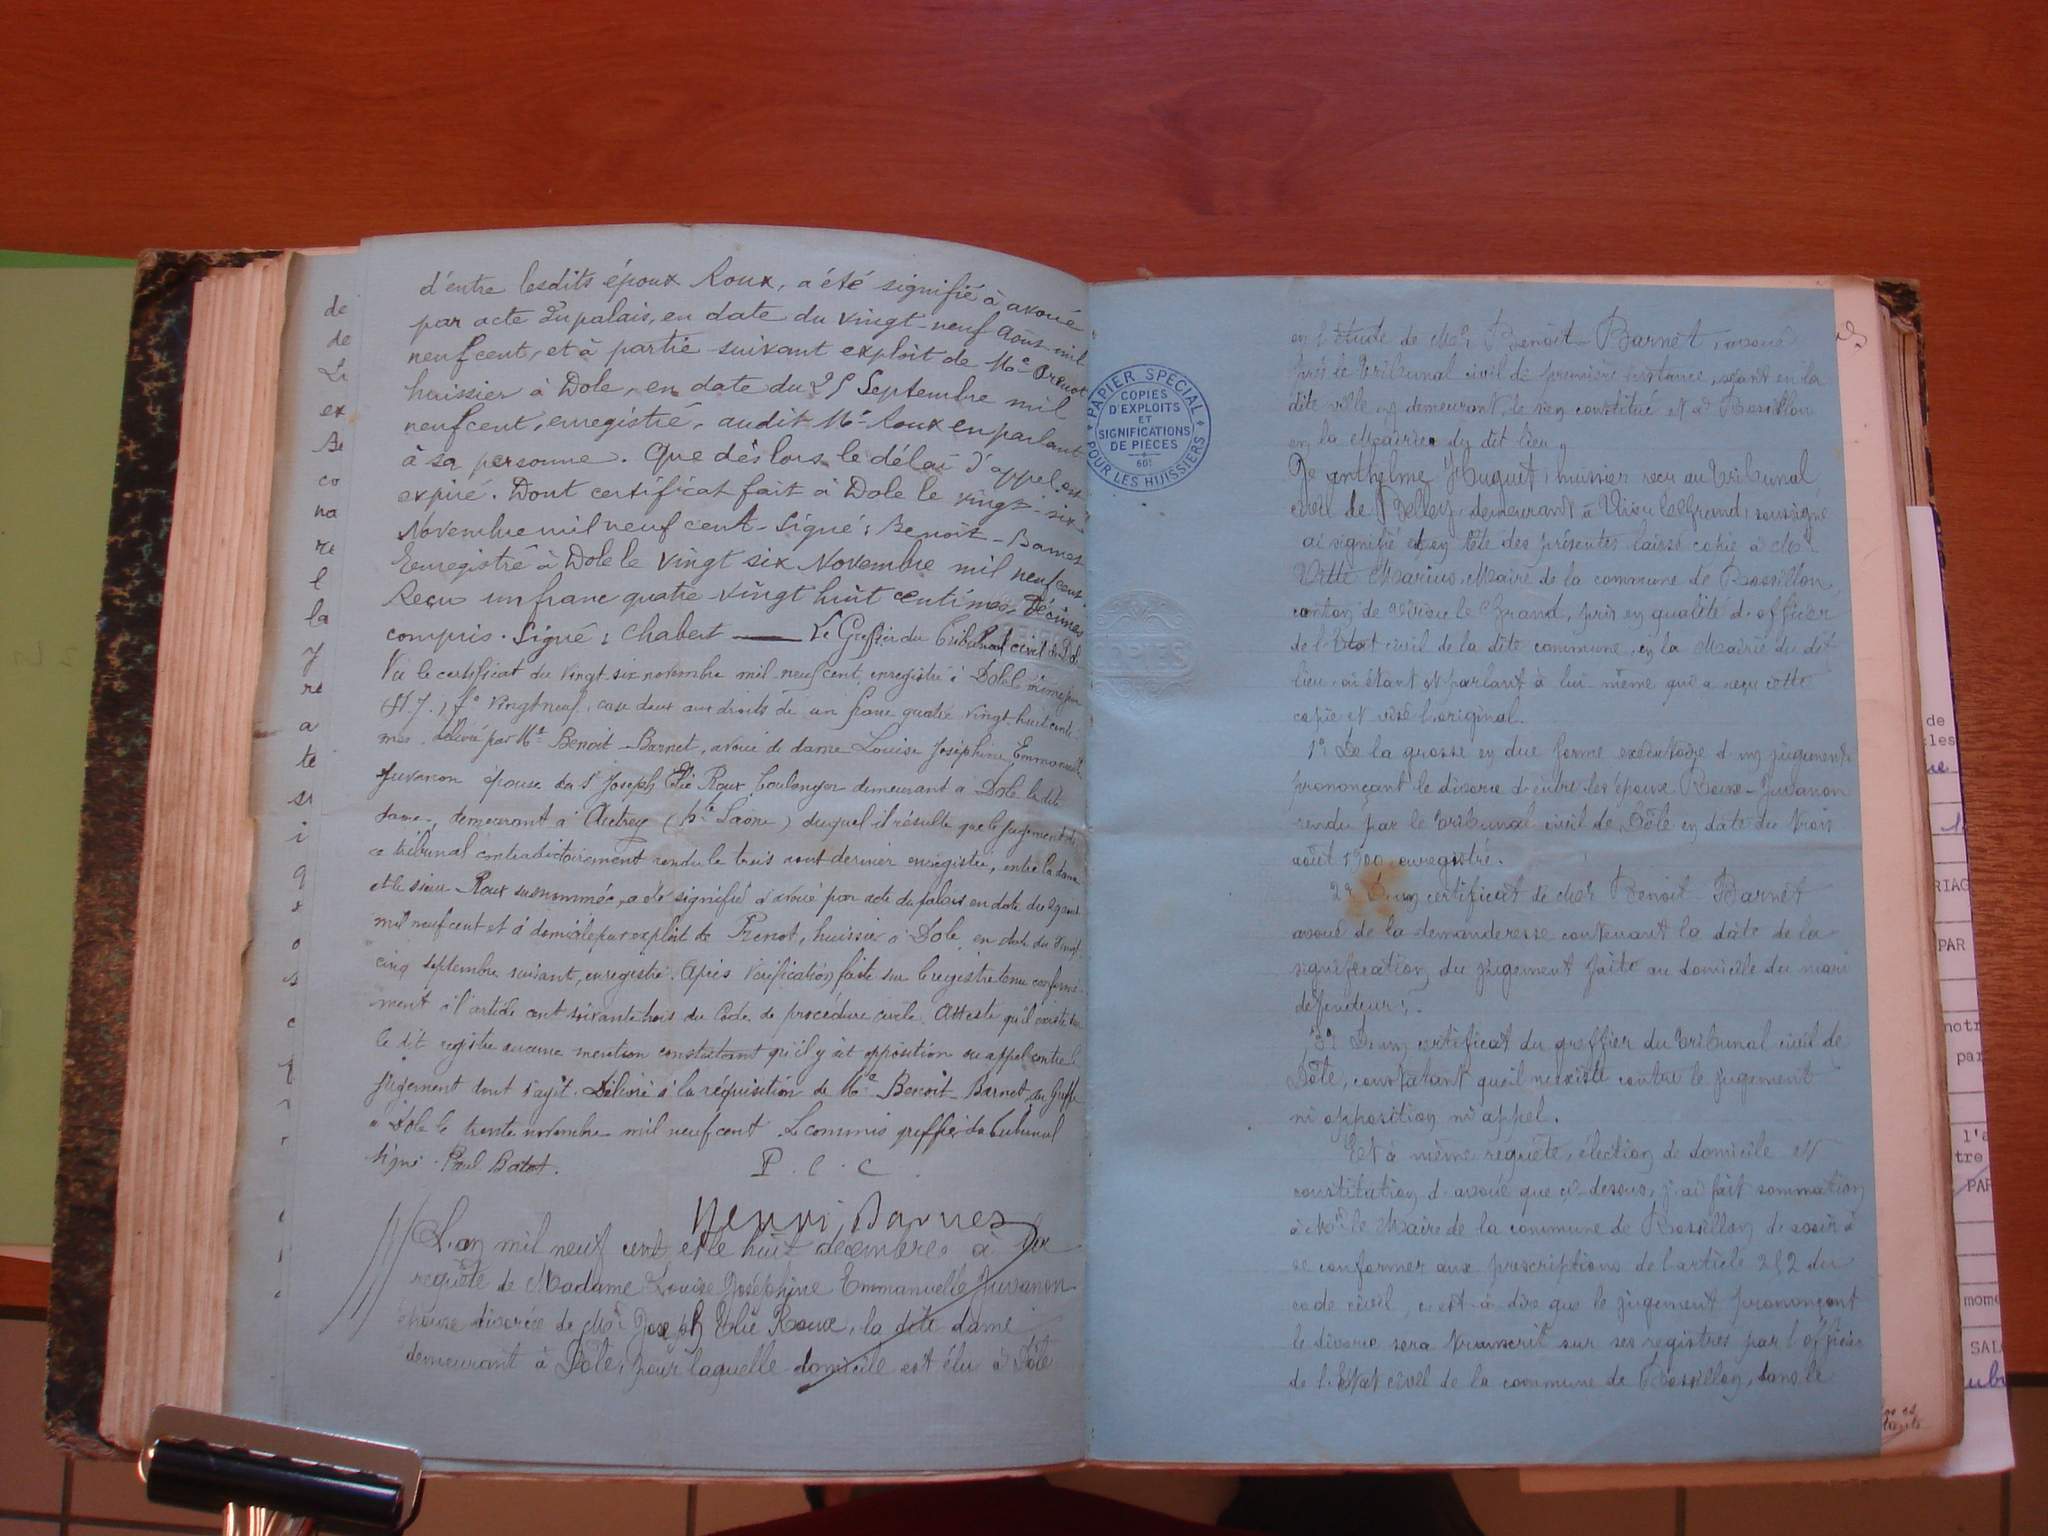 d'entre lesdits époux Roux, a été signifié à avoué
par acte du palais, en date du vingt-neuf Août mil
neuf cent, et à partie suivant exploit de Me Prenot
huissier à Dole, en date du 25 Septembre mil
neuf cent, enregistré, audit Mr Roux en parlant
à sa personne. Que dès lors le délai d'appel est
expiré. Dont certificat fait à Dole le vingt-six
Novembre mil neuf cent - Signé: Benoit-Barnet
Enregistré à Dole le vingt six Novembre mil neuf cent.
Reçu un franc quatre-vingt huit centimes, Décimes
compris. Signé: Chabert — Le Greffier du Tribunal civil de
Vu le certificat du vingt-six novembre mil neuf cent, enregistré à Dole le même jour
fo vingt neuf, case deux aux droits de un franc quatre vingt huit centi-
mes. Délivré par Me Benoit-Barnet, avoué de dame Louise Joséphine Emmanuelle
Juvanon épouse du sr Joseph Elie Roux boulanger demeurant à Dole la dite
dame, demeurant à Autrey (hte Saône) duquel il résulte que le jugement de
ce tribunal contradictoirement rendu le trois aout dernier enregistré, entre la dame
et le sieur Roux susnommés, a été signifié à avoué par acte du palais en date du 29 aout
mil neuf cent et à domicile par exploit de Prenot, huissier à Dole, en date du vingt
cinq septembre suivant, enregistré. Après vérification faite sur le registre tenu conformé-
ment à l'article cent soixante trois du Code de procédure civile. Atteste qu'il n'existe sur
le dit registre aucune mention constatant qu'il y ait opposition ou appel contre le
jugement dont s'agit. Délivré à la réquisition de Me Benoit-Barnet, au Greffe
à Dole le trente novembre mil neuf cent. Le commis greffier du Tribunal
signé. Paul Batot.
P. C. C.
Henri Barnes
L'an mil neuf cent et le huit décembre à la
requête de Madame Louise Joséphine Emmanuelle Juvanon
épouse divorcée de Mr Joseph Elie Roux, la dite dame
demeurant à Dôle, pour laquelle domicile est élu à Dôle
PAPIER SPÉCIAL POUR LES HUISSIERS
COPIES
D'EXPLOITS
ET
SIGNIFICATIONS
DE PIÈCES
60c
COPIES
en l'étude de Me Benoit-Barnet, avoué
près le tribunal civil de première instance, séant en la
dite ville y demeurant, le sien constitué et à Rossillon
en la Mairie du dit lieu,
Je Anthelme Huguet, huissier reçu au tribunal
civil de Belley, demeurant à Virieu le Grand, soussigné
ai signifié et en tête des présentes laissé copie à Mr
Vitte Marius, Maire de la commune de Rossillon,
canton de Virieu le Grand, pris en qualité d'officier
de l'Etat civil de la dite commune, en la Mairie du dit
lieu, où étant et parlant à lui même qui a reçu cette
copie et visé l'original.
1o De la grosse en due forme exécutoire d'un jugement
prononçant le divorce d'entre les époux Roux-Juvanon
rendu par le tribunal civil de Dôle en date du trois
août 1900, enregistré.
2o D'un certificat de Me Benoit-Barnet
avoué de la demanderesse contenant la date de la
signification du jugement faite au domicile du mari
défendeur;
3o D'un certificat du greffier du tribunal civil de
Dôle, constatant qu'il n'existe contre le jugement
ni opposition ni appel.
Et à même requête, élection de domicile et
constitution d'avoué que ci-dessus, j'ai fait sommation
à Mr le Maire de la commune de Rossillon de avoir à
se conformer aux prescriptions de l'article 252 du
code civil, c'est-à-dire que le jugement prononçant
le divorce sera transcrit sur ses registres par l'officier
de l'Etat civil de la commune de Rossillon, dans le